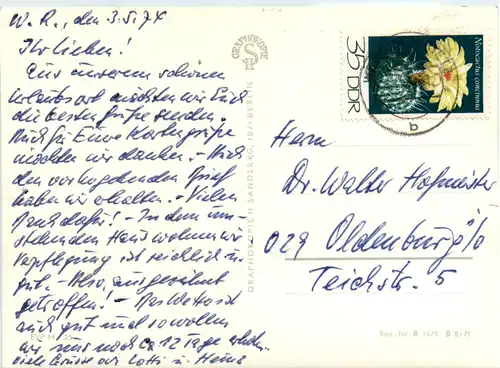 W. R., den 3.5.74
Ihr Lieben!
Aus unserem schönen
Urlaubsort möchten wir Euch
die besten Grüße senden.
Auch für Eure Kartengrüße
möchten wir danken. - Auch
den vorliegenden Brief
haben wir erhalten. - Vielen
Dank dafür! - In dem um-
stehenden Haus wohnen wir
Verpflegung ist reichlich u
gut. - Also, ausgezeichnet
getroffen! - Das Wetter ist
auch gut und so wollen
wir nur noch ca 12 Tage
viele Grüße von Lotti u. Heinz
GRAPHOKOPIE
GRAPHOKOPIE H. SANDER KG, 1071 BERLIN
35 DDR
Herrn
Dr. Walter Hofmeister
029 Oldenburg i/o
Teichstr. 5
EVP M
Best.-Nr. B 8/71